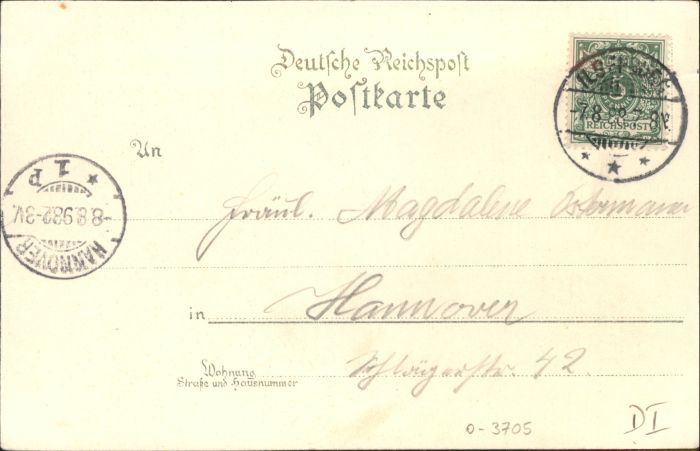 Deutsche Reichspost
Postkarte
REICHSPOST
7.8.98.7-8V.
An
1 P
8.8.98 2-3V.
HANNOVER
Fräul. Magdalene
in Hannover
Wohnung
Straße und Hausnummer
Schlägerstr. 42.
0-3705
DI